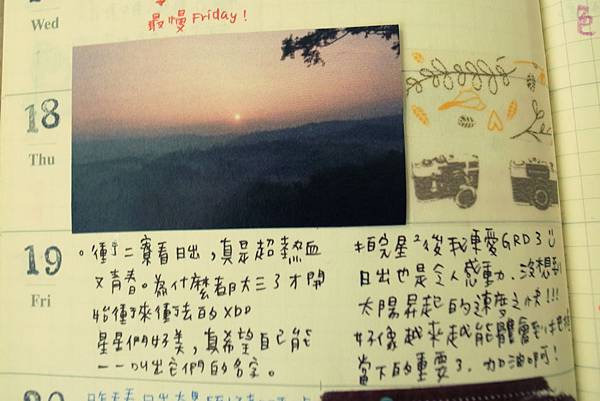 Wed
最慢 Friday!
18
Thu
19
Fri
。衝了二寮看日出,真是超熱血
又青春。為什麼都大三了才開
始衝來衝去的XDD
星星們好美,真希望自己能
一一叫出它們的名字。
拍完星²後我更愛GRD3
日出也是令人感動.沒想到
太陽昇起的速度之快!!!
好像越來越能體會到把握
當下的重要了.加油啊!
20
色